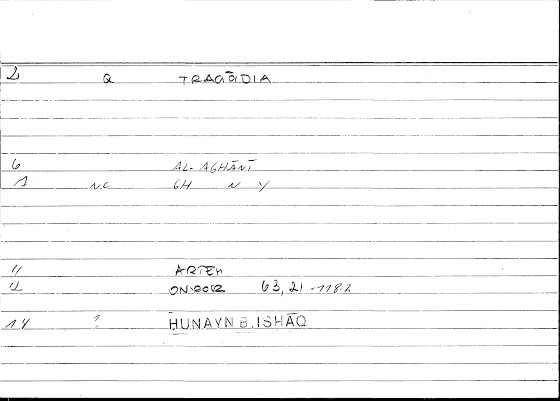 2 Q TRAGŌIDIA
6 AL-AGHĀNĪ
1 NC GH N Y
11 ARTEH
63,21-1182
14 ? HUNAYN B. ISHĀQ